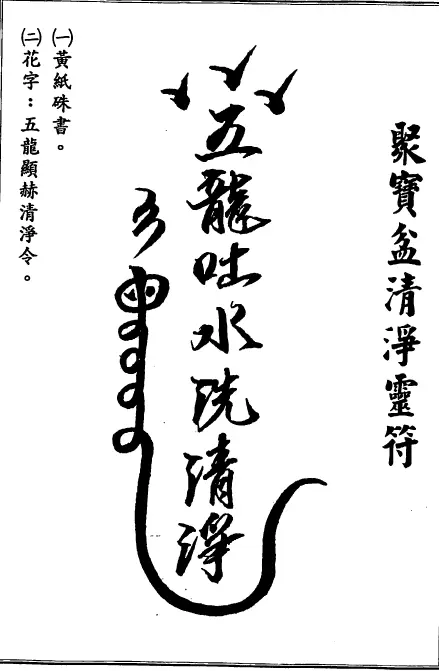 聚寶盆清淨靈符
五龍吐水洗清淨
㈠黃紙硃書。
㈡花字：五龍顯赫清淨令。